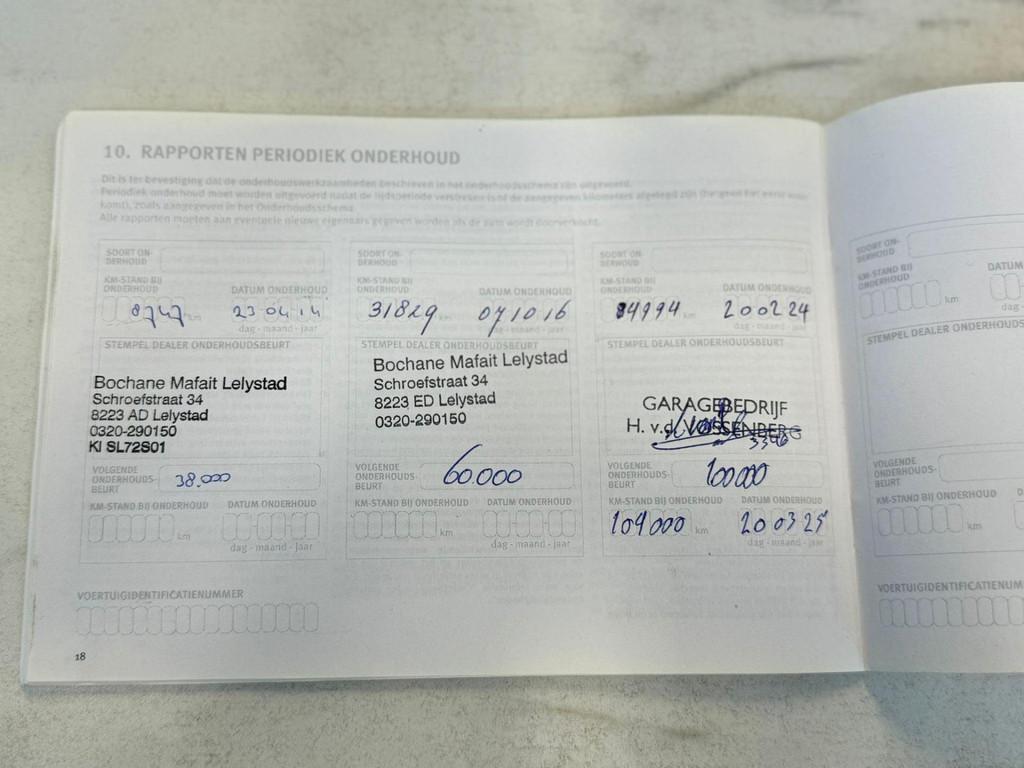 10. RAPPORTEN PERIODIEK ONDERHOUD
Dit is ter bevestiging dat de onderhoudswerkzaamheden beschreven in het onderhoudsschema zijn uitgevoerd.
Periodiek onderhoud moet worden uitgevoerd nadat de tijdsperiode verstreken is of de aangegeven kilometers afgelegd zijn
komt), zoals aangegeven in het Onderhoudsschema.
Alle rapporten moeten aan eventuele nieuwe eigenaars gegeven worden als de auto wordt doorverkocht.
SOORT ON-
DERHOUD
KM-STAND BIJ
ONDERHOUD
DATUM ONDERHOUD
8747 km
23 04 14
dag - maand - jaar
STEMPEL DEALER ONDERHOUDSBEURT
Bochane Mafait Lelystad
Schroefstraat 34
8223 AD Lelystad
0320-290150
KI SL72S01
VOLGENDE
ONDERHOUDS-
BEURT
38.000
KM-STAND BIJ ONDERHOUD
DATUM ONDERHOUD
km
dag - maand - jaar
SOORT ON-
DERHOUD
KM-STAND BIJ
ONDERHOUD
DATUM ONDERHOUD
31829 km
07 10 16
dag - maand - jaar
STEMPEL DEALER ONDERHOUDSBEURT
Bochane Mafait Lelystad
Schroefstraat 34
8223 ED Lelystad
0320-290150
VOLGENDE
ONDERHOUDS-
BEURT
60.000
KM-STAND BIJ ONDERHOUD
DATUM ONDERHOUD
km
dag - maand - jaar
SOORT ON-
DERHOUD
KM-STAND BIJ
ONDERHOUD
DATUM ONDERHOUD
84994 km
20 02 24
dag - maand - jaar
STEMPEL DEALER ONDERHOUDSBEURT
GARAGEBEDRIJF
H. v.d. VOSSENBERG
VOLGENDE
ONDERHOUDS-
BEURT
100000
KM-STAND BIJ ONDERHOUD
DATUM ONDERHOUD
104000 km
20 03 25
dag - maand - jaar
VOERTUIGIDENTIFICATIENUMMER
18
SOORT ON-
DERHOUD
KM-STAND BIJ
ONDERHOUD
DATUM
km
dag
STEMPEL DEALER ONDERHOUDS
VOLGENDE
ONDERHOUDS-
BEURT
KM-STAND BIJ ONDERHOUD
km
VOERTUIGIDENTIFICATIENUM